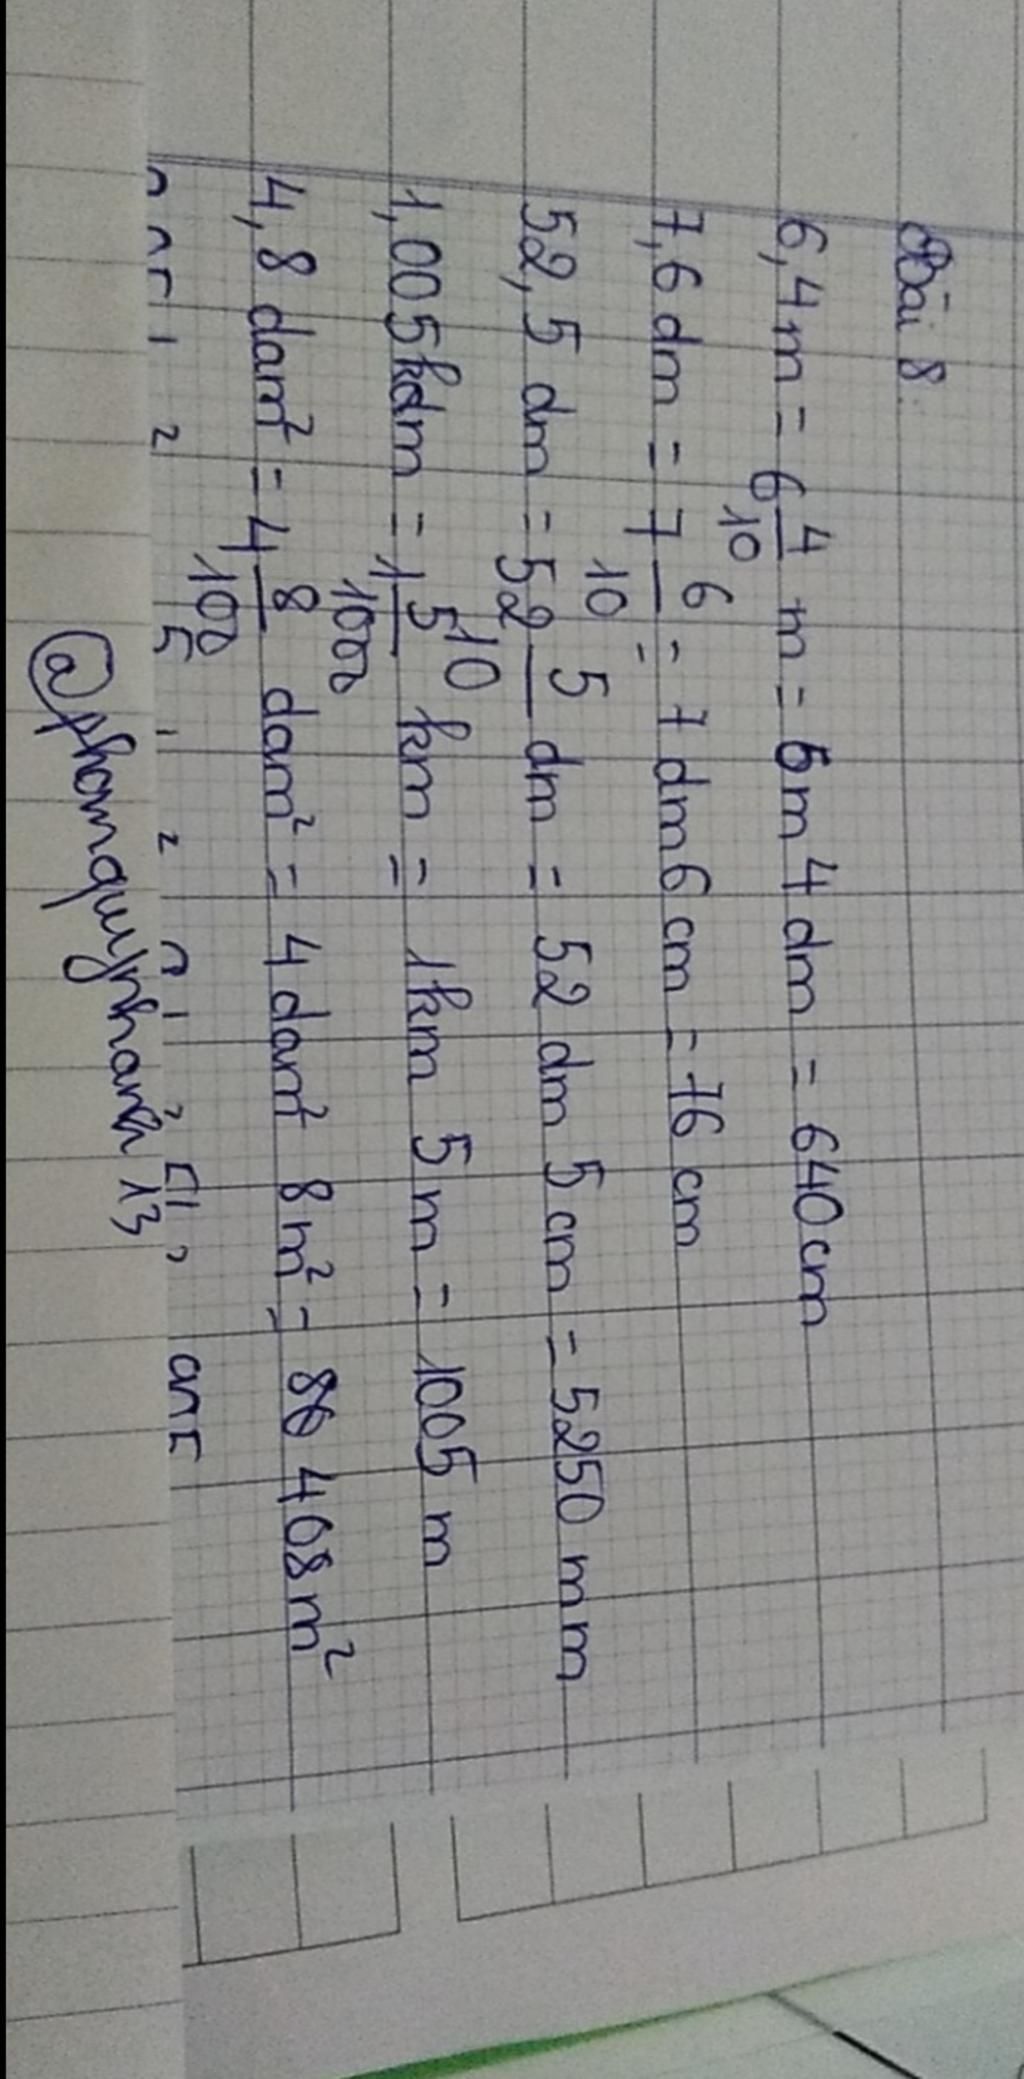 Bài 8.
6,4m = 6 4/10 m = 6m 4 dm = 640 cm
7,6 dm = 7 6/10 = 7 dm 6 cm = 76 cm
52,5 dm = 52 5/10 dm = 52 dm 5 cm = 5250 mm
1,005 km = 1 5/1000 km = 1km 5 m = 1005 m
4,8 dam² = 4 8/100 dam² = 4 dam² 8 m² = 408 m²
@phomquynhanh13